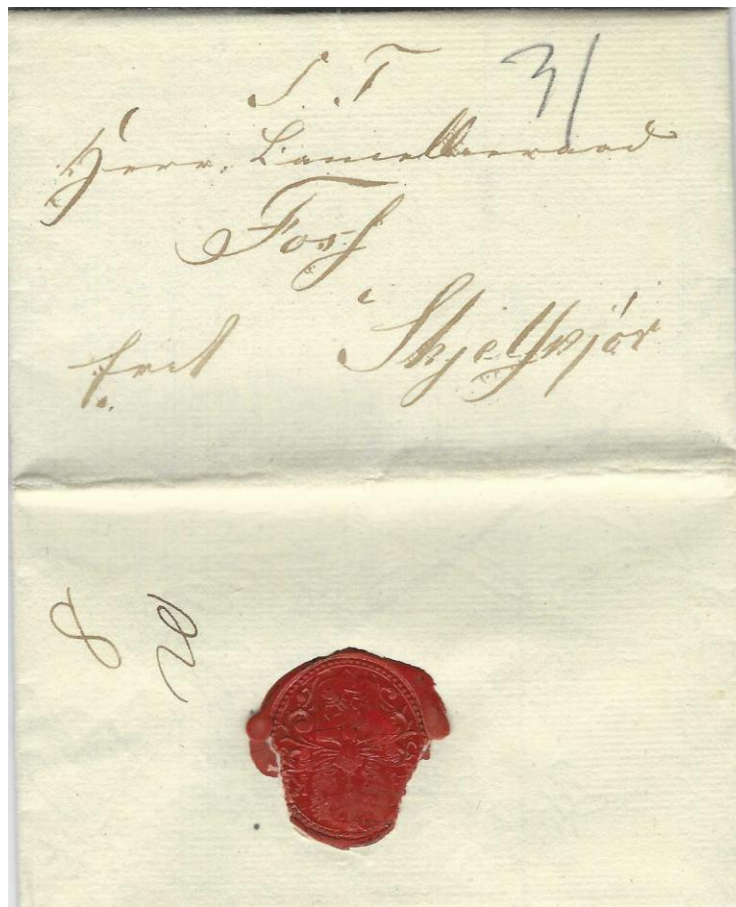 S. T
31
Herr. Cancelleeraad
Foss
frit Skjelskjör
8